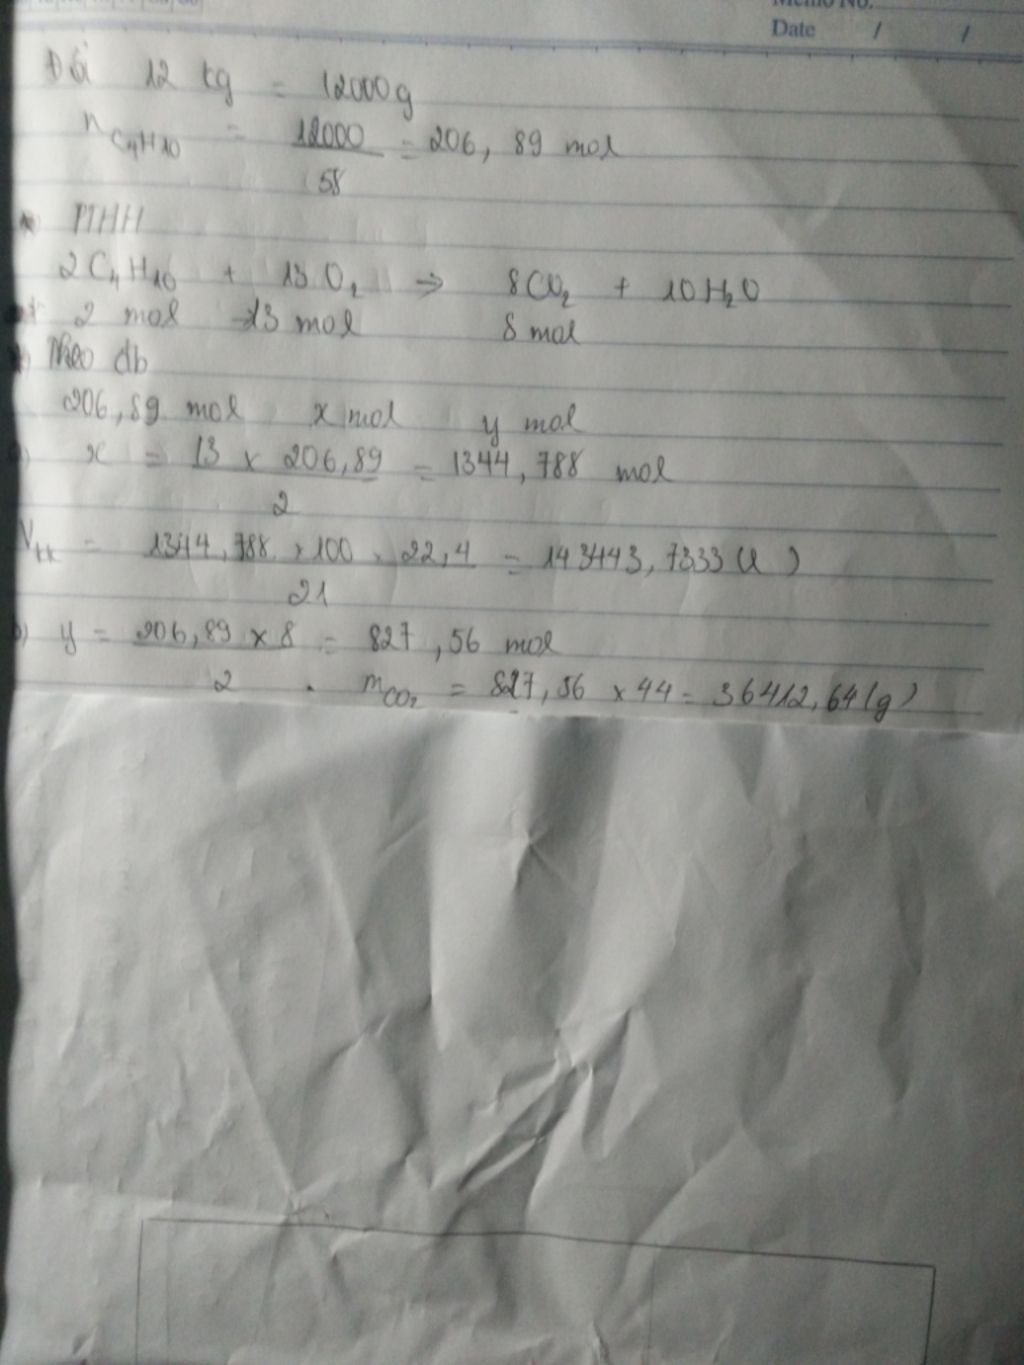 Memo No.
Date / /
Đổi 12 kg = 12000g
nC4H10 = 12000/58 = 206, 89 mol
PTHH
2C4H10 + 13O2 → 8CO2 + 10H2O
2 mol 13 mol 8 mol
Theo đb
206,89 mol x mol y mol
x = 13 x 206,89/2 = 1344,788 mol
Vkk = 1344,788 x 100 x 22,4/21 = 143443,7333 (l)
b) y = 206,89 x 8/2 = 827,56 mol
mCO2 = 827,56 x 44 = 36412,64 (g)